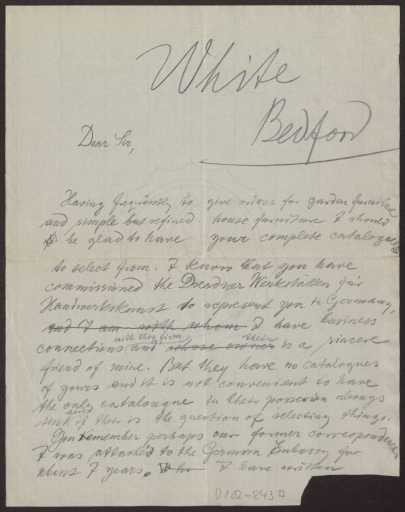 White
Bedford
Dear Sir,
Having frequently to give orders for garden furniture
and simple but refined house furniture I should
be glad to have your complete catalogue
to select from. I know that you have
commissioned the Dresdner Werkstätten für
Handwerkskunst to represent you in Germany,
and I am with whom I have business
with this firm their
connections and whose owner is a sincere
friend of mine. But they have no catalogues
of yours and it is not convenient to have
the only catalogue in their possession always
sent if there is the question of selecting things.
You remember perhaps our former correspondence,
I was attached to the German Embassy for
about 7 years. I have written
D 102-243